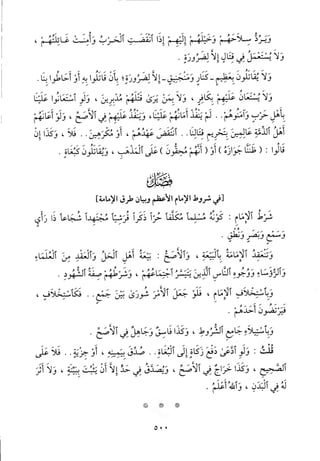 وَيُرَدُّ سِلَاحُهُمْ وَخَيْلُهُمْ إِلَيْهِمْ إِذَا انْقَضَتِ الْحَرْبُ وَأُمِنَتْ غَائِلَتُهُمْ ،
وَلَا يُسْتَعْمَلُ فِي قِتَالٍ إِلَّا لِضَرُورَةٍ .
وَلَا يُقَاتَلُونَ بِعَظِيمٍ - كَنَارٍ وَمَنْجَنِيقٍ - إِلَّا لِضَرُورَةٍ ؛ بِأَنْ قَاتَلُوا بِهِ أَوْ أَحَاطُوا بِنَا .
وَلَا يُسْتَعَانُ عَلَيْهِمْ بِكَافِرٍ ، وَلَا بِمَنْ يَرَىٰ قَتْلَهُمْ مُدْبِرِينَ ، وَلَوِ اسْتَعَانُوا عَلَيْنَا
بِأَهْلِ حَرْبٍ وَآمَنُوهُمْ . . لَمْ يَنْفُذْ أَمَانُهُمْ عَلَيْنَا ، وَيَنْفُذُ عَلَيْهِمْ فِي الْأَصَحِّ ، وَلَوْ أَعَانَهُمْ
أَهْلُ الذِّمَّةِ عَالِمِينَ بِتَحْرِيمِ قِتَالِنَا . . انْتَقَضَ عَهْدُهُمْ ، أَوْ مُكْرَهِينَ . . فَلَا ، وَكَذَا إِنْ
قَالُوا : ( ظَنَنَّا جَوَازَهُ ) أَوْ ( أَنَّهُمْ مُحِقُّونَ ) عَلَى الْمَذْهَبِ ، وَيُقَاتَلُونَ كَبُغَاةٍ .
فَصْلٌ
[في شروط الإمام الأعظم وبيان طرق الإمامة]
شَرْطُ الْإِمَامِ : كَوْنُهُ مُسْلِماً مُكَلَّفاً حُرّاً ذَكَراً قُرَشِيّاً مُجْتَهِداً شُجَاعاً ذَا رَأْيٍ
وَسَمْعٍ وَبَصَرٍ وَنُطْقٍ .
وَتَنْعَقِدُ الْإِمَامَةُ بِالْبَيْعَةِ ، وَالْأَصَحُّ : بَيْعَةُ أَهْلِ الْحَلِّ وَالْعَقْدِ مِنَ الْعُلَمَاءِ
وَالرُّؤَسَاءِ وَوُجُوهِ النَّاسِ الَّذِينَ يَتَيَسَّرُ اجْتِمَاعُهُمْ ، وَشَرْطُهُمْ صِفَةُ الشُّهُودِ .
وَبِاسْتِخْلَافِ الْإِمَامِ ، فَلَوْ جَعَلَ الْأَمْرَ شُورَىٰ بَيْنَ جَمْعٍ . . فَكَاسْتِخْلَافٍ ،
فَيَرْتَضُونَ أَحَدَهُمْ .
وَبِاسْتِيلَاءِ جَامِعِ الشُّرُوطِ ، وَكَذَا فَاسِقٌ وَجَاهِلٌ فِي الْأَصَحِّ .
قُلْتُ : وَلَوِ ادَّعَىٰ دَفْعَ زَكَاةٍ إِلَى الْبُغَاةِ . . صُدِّقَ بِيَمِينِهِ ، أَوْ جِزْيَةٍ . . فَلَا عَلَى
الصَّحِيحِ ، وَكَذَا خَرَاجٌ فِي الْأَصَحِّ ، وَيُصَدَّقُ فِي حَدٍّ إِلَّا أَنْ يَثْبُتَ بِبَيِّنَةٍ ، وَلَا أَثَرَ
لَهُ فِي الْبَدَنِ ، وَاللهُ أَعْلَمُ .
* * *
٥٠٠